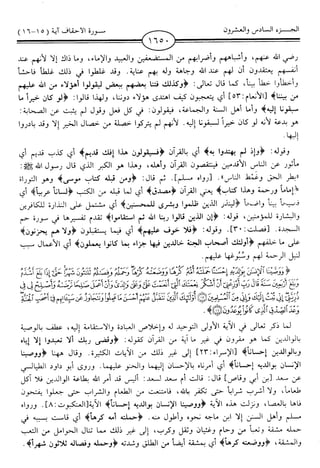 الجزء السادس والعشرون
١٦٥٠
سورة الأحقاف آية (١٥-١٦)
رضي الله عنهم، وأشباههم وأضرابهم من المستضعفين والعبيد والإماء، وما ذاك إلا لأنهم عند
أنفسهم يعتقدون أن لهم عند الله وجاهة وله بهم عناية. وقد غلطوا في ذلك غلطاً فاحشاً
وأخطأوا خطأً بيناً، كما قال تعالى: ﴿وكذلك فتنا بعضهم ببعض ليقولوا أهؤلاء من الله عليهم
من بيننا﴾ [الأنعام: ٥٣] أي يتعجبون كيف اهتدى هؤلاء دوننا، ولهذا قالوا: ﴿لو كان خيراً ما
سبقونا إليه﴾ وأما أهل السنة والجماعة، فيقولون: في كل فعل وقول لم يثبت عن الصحابة:
هو بدعة لأنه لو كان خيراً لسبقونا إليه. لأنهم لم يتركوا خصلة من خصال الخير إلا وقد بادروا
إليها.
وقوله: ﴿وإذ لم يهتدوا به﴾ أي بالقرآن ﴿فسيقولون هذا إفك قديم﴾ أي كذب قديم أي
مأثور عن الناس الأقدمين فينتقصون القرآن وأهله، وهذا هو الكبر الذي قال رسول الله ﷺ:
«بطر الحق وغمط الناس». [رواه مسلم]. ثم قال: ﴿ومن قبله كتاب موسى﴾ وهو التوراة
﴿إماماً ورحمة وهذا كتاب﴾ يعني القرآن ﴿مصدق﴾ أي لما قبله من الكتب ﴿لساناً عربياً﴾ أي
فصيحاً بيناً واضحاً ﴿لينذر الذين ظلموا وبشرى للمحسنين﴾ أي مشتمل على النذارة للكافرين
والبشارة للمؤمنين، قوله: ﴿إن الذين قالوا ربنا الله ثم استقاموا﴾ تقدم تفسيرها في سورة حم
السجدة. [فصلت: ٣٠]. وقوله: ﴿فلا خوف عليهم﴾ أي فيما يستقبلون ﴿ولا هم يحزنون﴾
على ما خلفهم ﴿أولئك أصحاب الجنة خالدين فيها جزاء بما كانوا يعملون﴾ أي الأعمال سبب
لنيل الرحمة لهم وسبوغها عليهم.
﴿وَوَصَّيْنَا الْإِنسَانَ بِوَالِدَيْهِ إِحْسَانًا حَمَلَتْهُ أُمُّهُ كُرْهًا وَوَضَعَتْهُ كُرْهًا وَحَمْلُهُ وَفِصَالُهُ ثَلَاثُونَ شَهْرًا حَتَّىٰ إِذَا بَلَغَ أَشُدَّهُ
لما ذكر تعالى في الآية الأولى التوحيد له وإخلاص العبادة والاستقامة إليه، عطف بالوصية
بالوالدين كما هو مقرون في غير ما آية من القرآن كقوله: ﴿وقضى ربك ألا تعبدوا إلا إياه
وبالوالدين إحساناً﴾ [الإسراء: ٢٣] إلى غير ذلك من الآيات الكثيرة. وقال ههنا ﴿ووصينا
الإنسان بوالديه إحساناً﴾ أي أمرناه بالإحسان إليهما والحنو عليهما. وروى أبو داود الطيالسي
عن سعد [بن أبي وقاص] قال: قالت أم سعد لسعد: أليس قد أمر الله بطاعة الوالدين فلا آكل
طعاماً، ولا أشرب شراباً حتى تكفر بالله، فامتنعت من الطعام والشراب حتى جعلوا يفتحون
فاها بالعصا، ونزلت هذه الآية ﴿ووصينا الإنسان بوالديه إحساناً﴾ الآية [العنكبوت: ٨]. ورواه
مسلم وأهل السنن إلا ابن ماجه نحوه وأطول منه. ﴿حملته أمه كرهاً﴾ أي قاست بسببه في
حمله مشقة وتعباً من وحام وغثيان وثقل وكرب، إلى غير ذلك مما تنال الحوامل من التعب
والمشقة، ﴿ووضعته كرهاً﴾ أي بمشقة أيضاً من الطلق وشدته ﴿وحمله وفصاله ثلاثون شهراً﴾.